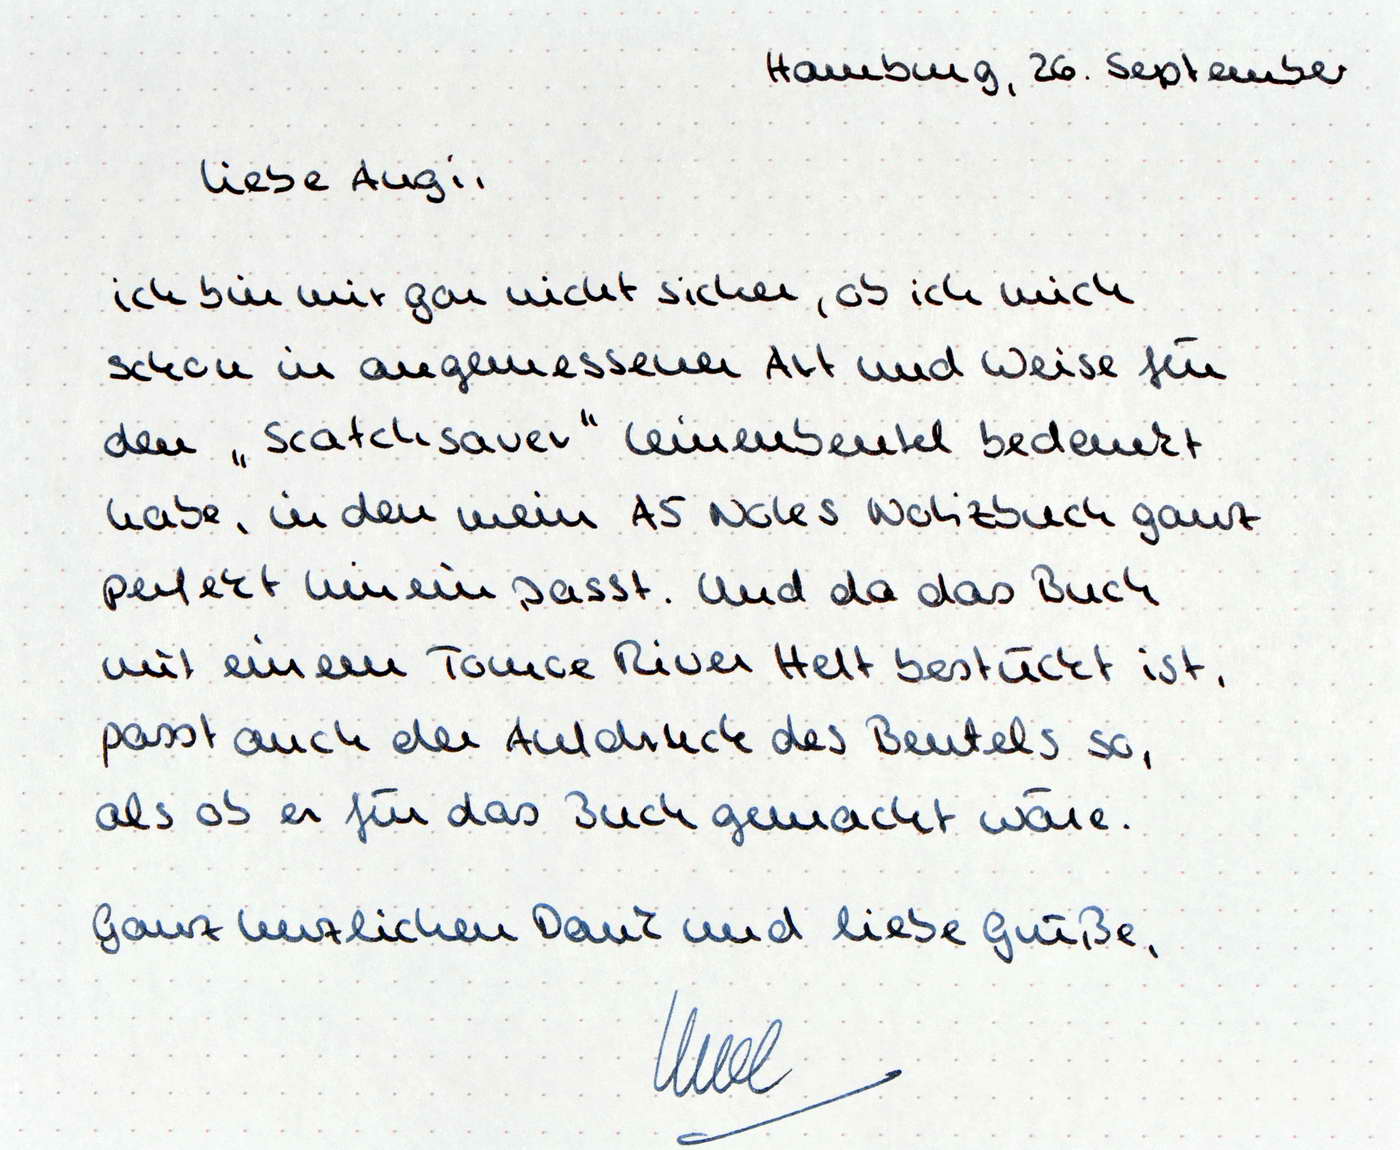 Hamburg, 26. September
Liebe Angi,
ich bin mir gar nicht sicher, ob ich mich
schon in angemessener Art und Weise für
den „Scatchsaver“ Leinenbeutel bedankt
habe, in den mein A5 Notes Notizbuch ganz
perfekt hinein passt. Und da das Buch
mit einem Tomoe River Heft bestückt ist,
passt auch der Aufdruck des Beutels so,
als ob er für das Buch gemacht wäre.
Ganz herzlichen Dank und liebe Grüße,